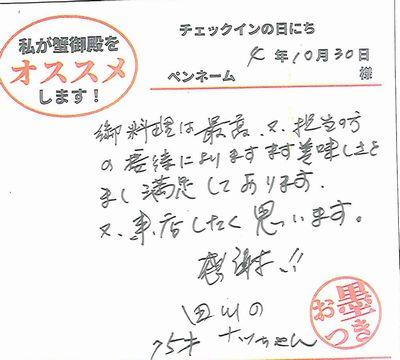 私が蟹御殿を
オススメ
します！
チェックインの日にち
年10月30日
ペンネーム 様
御料理は最高、又、担当の方
の接待によりますます美味しさを
まし満足しております。
又、来店したく思います。
感謝!!
田川の
75才
お墨つき